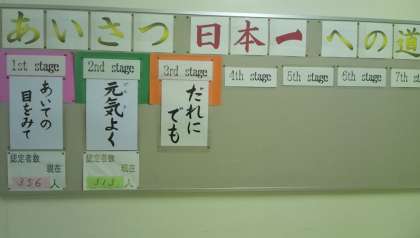 あいさつ日本一への道
1st stage
あいての
目をみて
認定者数
現在
356人
2nd stage
元気よく
認定者数
現在
313人
3rd stage
だれに
でも
4th stage
5th stage
6th stage
7th st